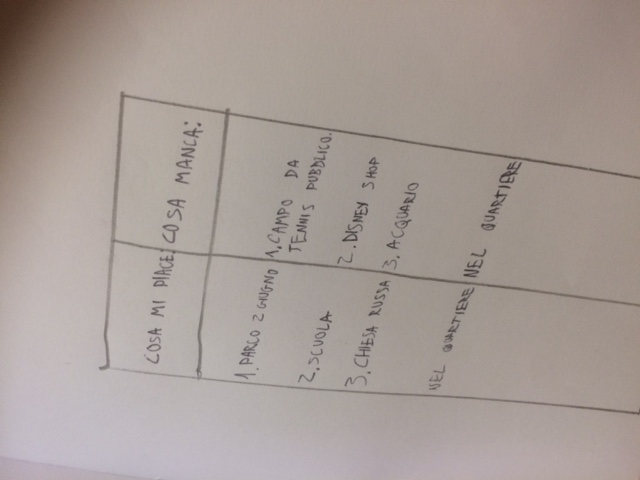 COSA MI PIACE:
1. PARCO 2 GIUGNO
2. SCUOLA
3. CHIESA RUSSA
NEL QUARTIERE
COSA MANCA:
1. CAMPO DA
TENNIS PUBBLICO.
2. DISNEY SHOP
3. ACQUARIO
NEL QUARTIERE